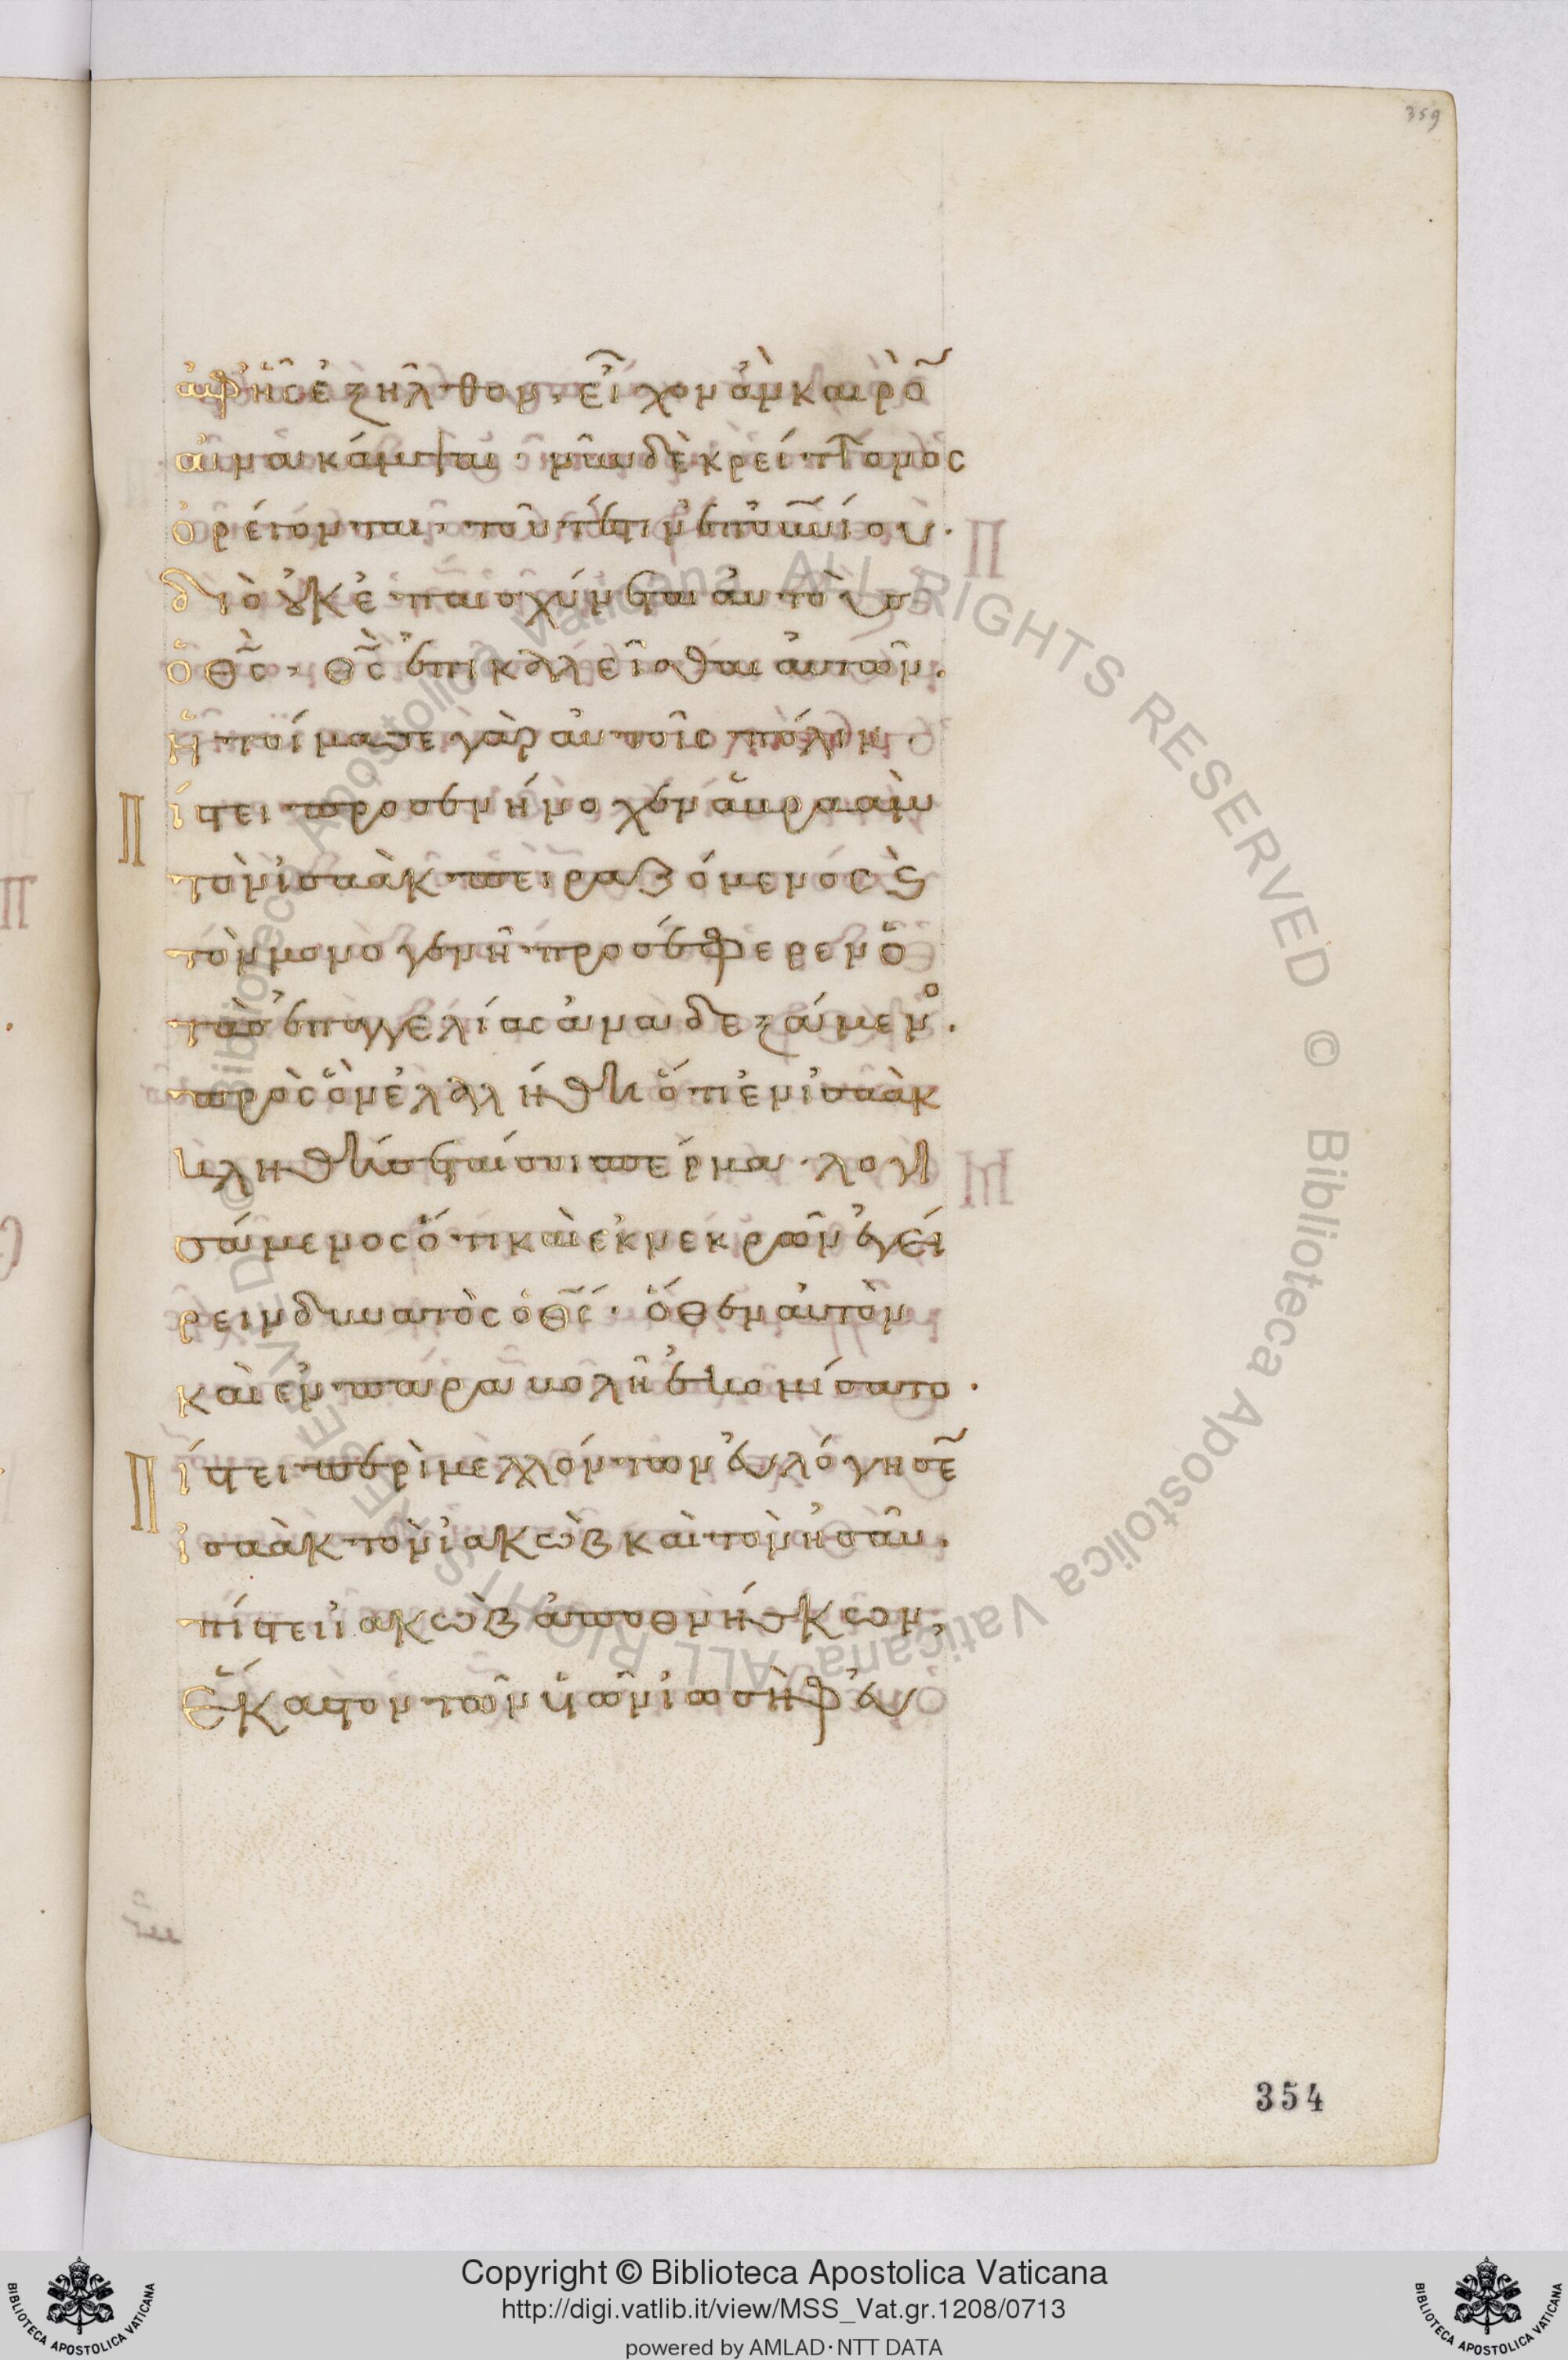 359
ἀφ ἧς ἐξῆλθον· εἶχον ἂν καιρὸ̃
ἀνακάμψαι· νῦν δὲ κρείττονος
ὀρέγονται· τοῦτ' ἔστιν ἐπουρανίου·
διὸ οὐκ ἐπαισχύνεται αὐτοὺσ
ὁ θ̅ς̅· θ̅ς̅ ἐπικαλεῖσθαι αὐτῶν·
ἡτοίμασε γὰρ αὐτοῖς πόλιν·
Πίστει προσενήνοχεν ἀβραὰμ
τὸν ἰσαὰκ πειραζόμενος ϗ
τὸν μονογενῆ προσέφερεν ὁ
τὰσ ἐπαγγελίας ἀναδεξάμενο·
πρὸς ὃν ἐλαλήθη ὅτι ἐν ἰσαὰκ
κληθήσεταί σοι σπέρμα· λογι
σάμενος ὅτι καὶ ἐκ νεκρῶν ἐγεί
ρειν δυνατὸς ὁ θ̅ς̅· ὅθεν αὐτὸν
καὶ ἐν παραβολῇ ἐκομίσατο·
Πίστει περὶ μελλόντων εὐλόγησε̃
ἰσαὰκ τὸν ἰακὼβ καὶ τὸν ἠσαῦ·
πίστει ἰακὼβ ἀποθνήσκων,
ἕκαστον τῶν υἱῶν ἰωσὴφ εὐ
354
Biblioteca Apostolica Vaticana ALL RIGHTS RESERVED © Biblioteca Apostolica Vaticana ALL RIGHTS RESERVED ©
Copyright © Biblioteca Apostolica Vaticana
http://digi.vatlib.it/view/MSS_Vat.gr.1208/0713
powered by AMLAD·NTT DATA
BIBLIOTECA APOSTOLICA VATICANA
BIBLIOTECA APOSTOLICA VATICANA